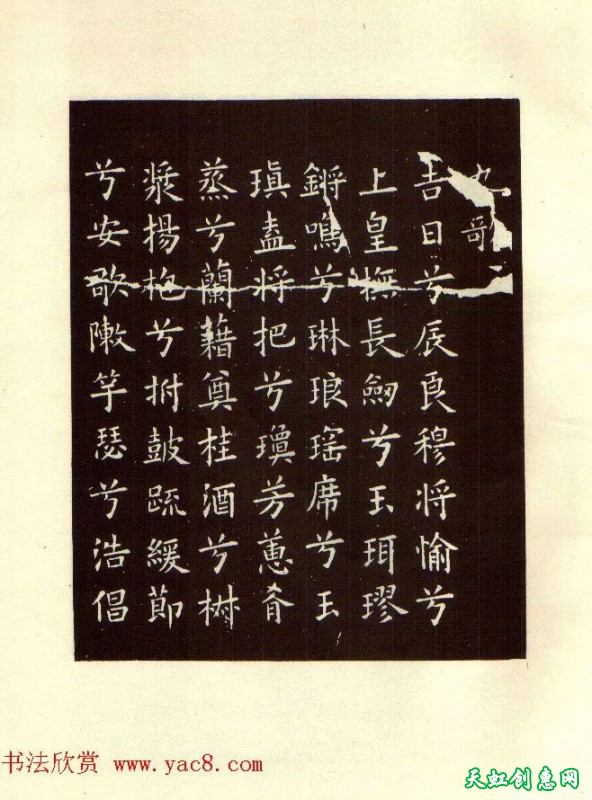 九歌
吉日兮辰良穆将愉兮
上皇撫長劒兮玉珥璆
鏘鳴兮琳琅瑶席兮玉
瑱盍将把兮瓊芳蕙肴
蒸兮蘭藉奠桂酒兮椒
漿揚枹兮拊鼓疏緩節
兮安歌陳竽瑟兮浩倡
书法欣赏 www.yac8.com
天虹创惠网